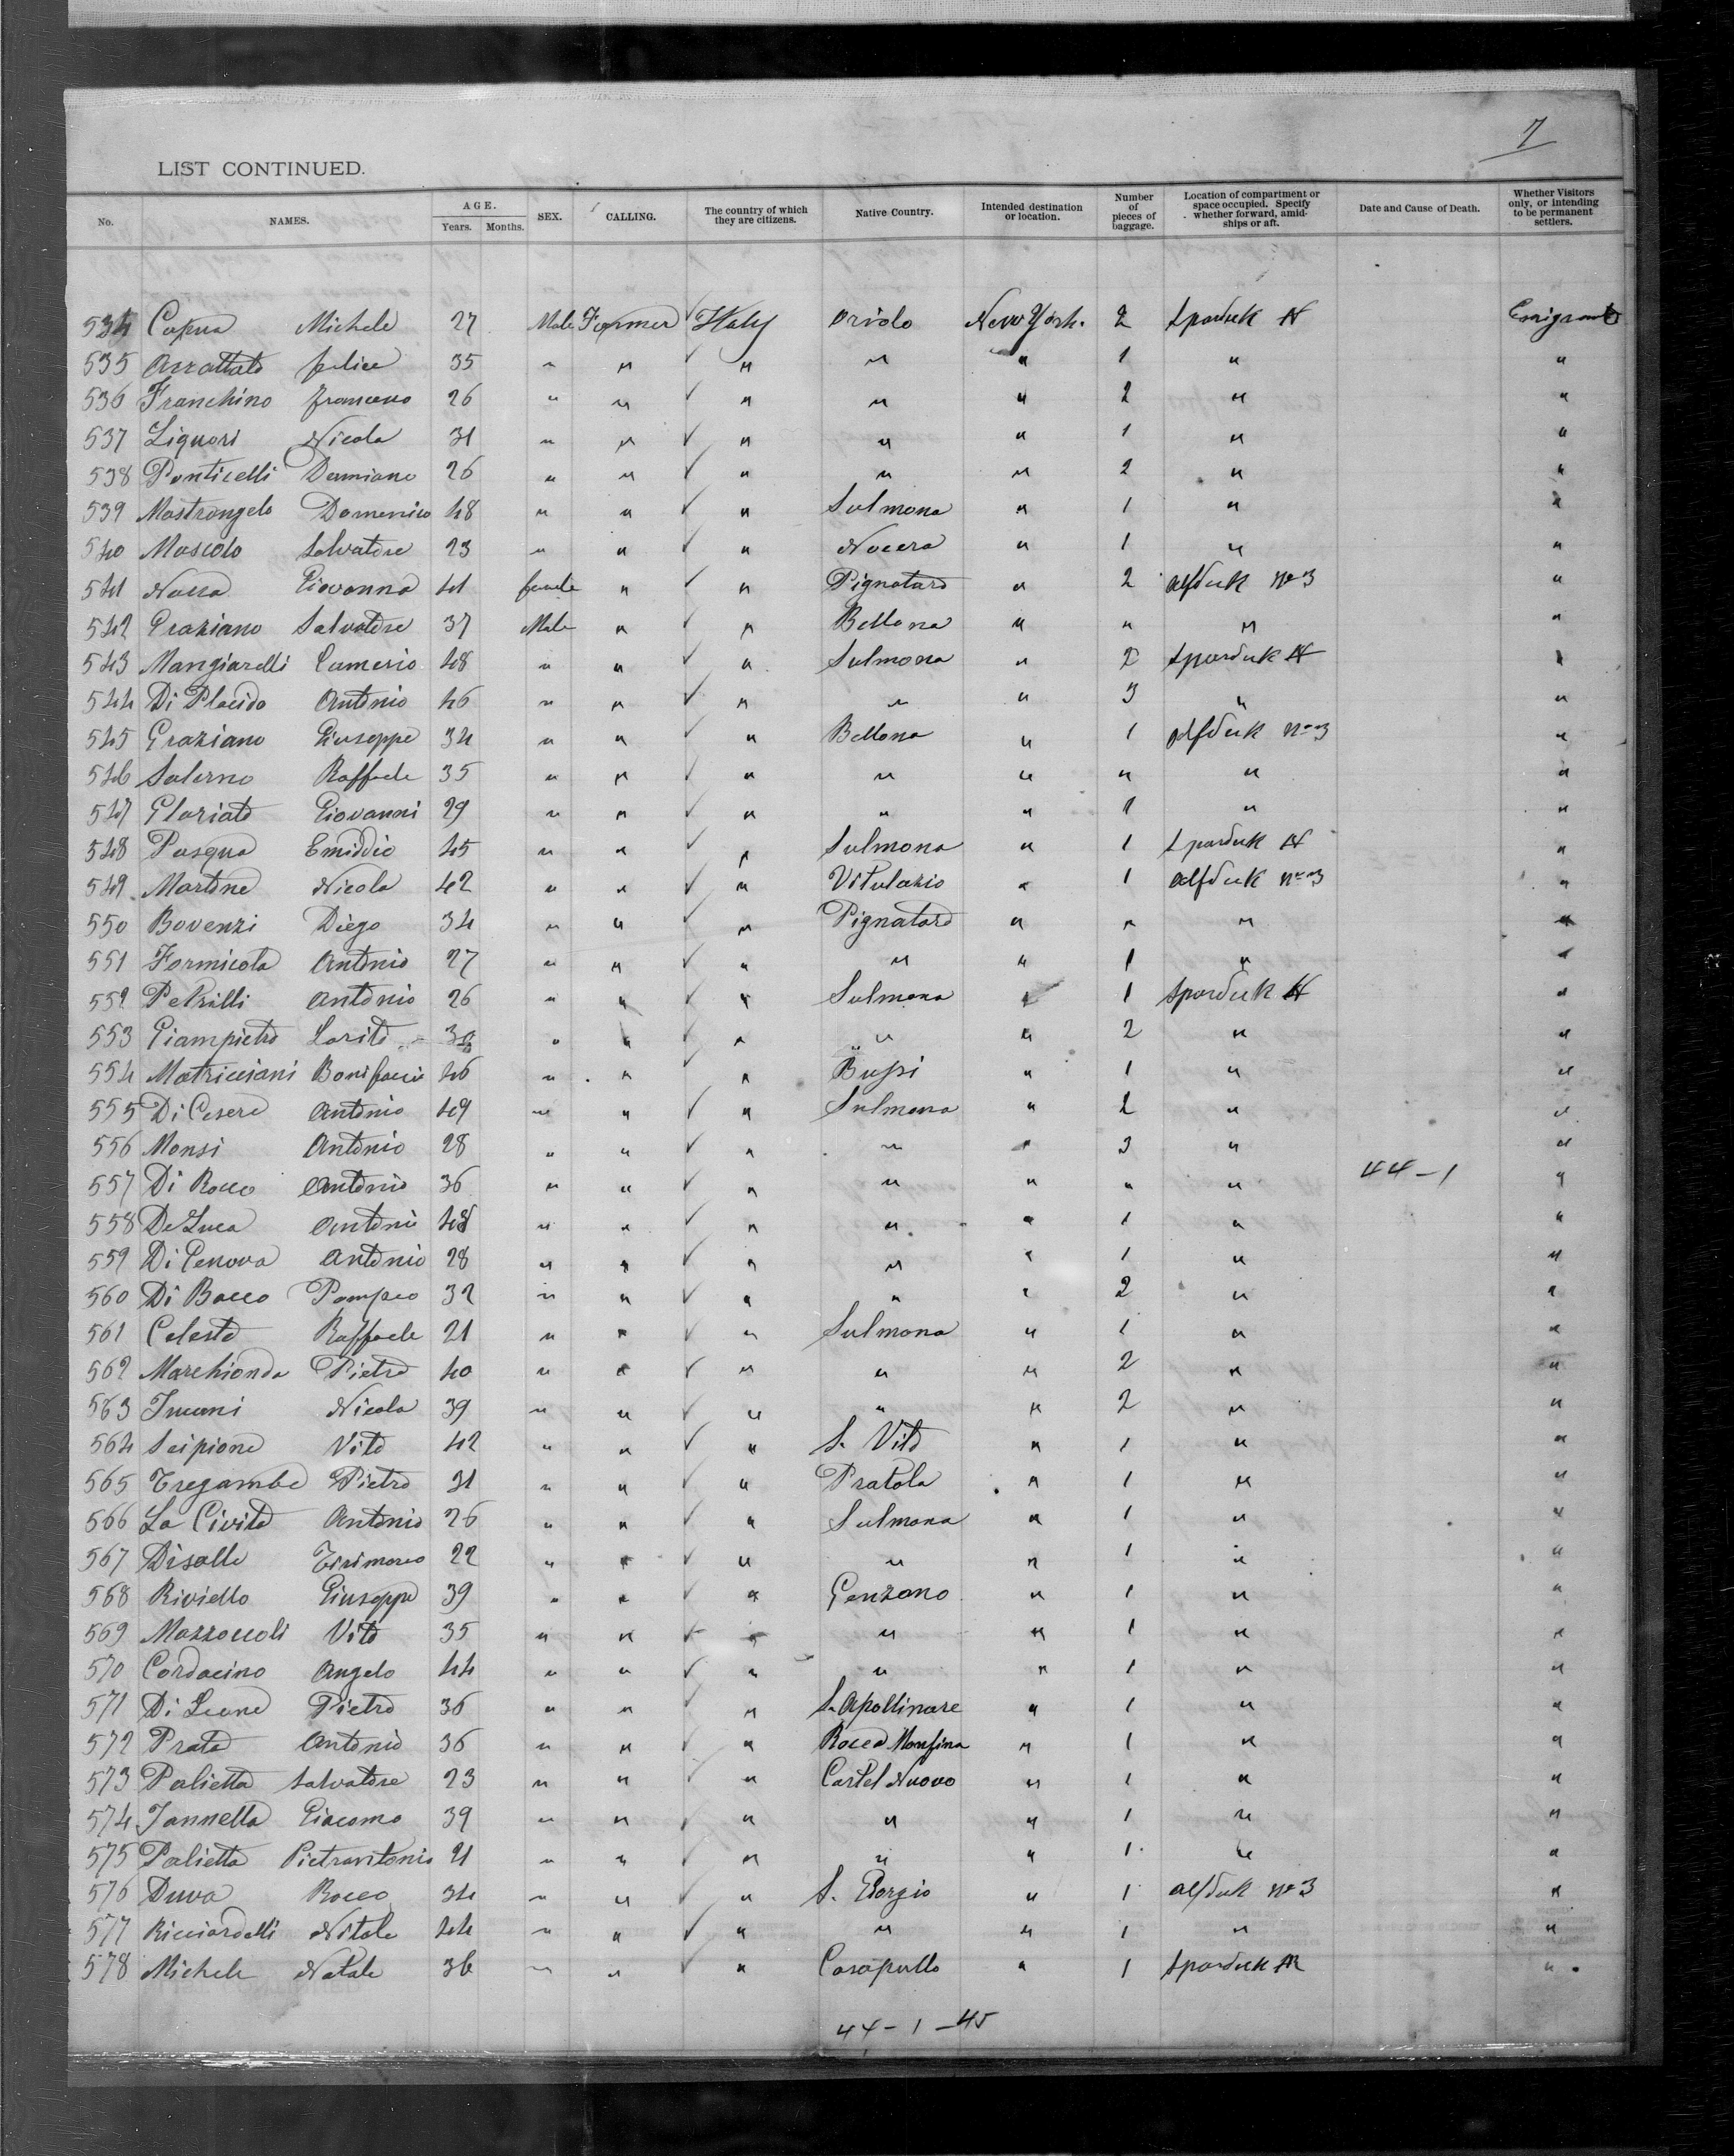 7
LIST CONTINUED.
No. NAMES. AGE. Years. Months. SEX. CALLING. The country of which they are citizens. Native Country. Intended destination or location. Number of pieces of baggage. Location of compartment or space occupied. Specify whether forward, amidships or aft. Date and Cause of Death. Whether Visitors only, or intending to be permanent settlers.
534 Capua Michele 27 Male Farmer Italy Oriolo New York. 2 Emigrant
535 Felice 35 " " ✓ " " " 1 " "
536 Franchino Francesco 26 " " ✓ " " " 2 " "
537 Liguori Nicola 31 " " ✓ " " " 1 " "
538 Ponticelli Damiano 26 " " ✓ " " " 2 " "
539 Mastrangelo Domenico 48 " " ✓ " Sulmona " 1 " "
540 Mascolo Salvatore 23 " " ✓ " Nocera " 1 " "
541 Giovanna 41 female " ✓ " Pignataro " 2 aftdeck No 3 "
542 Graziano Salvatore 37 Male " ✓ " Bellona " " " "
543 Mangiarelli Camerio 48 " " ✓ " Sulmona " 2 "
544 Di Placido Antonio 46 " " ✓ " " " 3 " "
545 Graziano Giuseppe 34 " " ✓ " Bellona " 1 aftdeck No 3 "
546 Salerno Raffaele 35 " " ✓ " " " " " "
547 Gloriato Giovanni 29 " " ✓ " " " 1 " "
548 Pasqua Emiddio 45 " " ✓ " Sulmona " 1 "
549 Martone Nicola 42 " " ✓ " Vitulazio " 1 aftdeck No 3 "
550 Bovenzi Diego 34 " " ✓ " Pignataro " " " "
551 Formicola Antonio 27 " " ✓ " " " 1 " "
552 Petrilli Antonio 26 " " ✓ " Sulmona " 1 "
553 Giampietro Loreto " " ✓ " " " 2 " "
554 Matricciani Bonifacio 46 " " ✓ " Bussi " 1 " "
555 Di Cesere Antonio 49 " " ✓ " Sulmona " 2 " "
556 Monsi Antonio 28 " " ✓ " " " 3 " "
557 Di Rocco Antonio 36 " " ✓ " " " " " 44-1 "
558 De Luca Antonio 48 " " ✓ " " " 1 " "
559 Di Genova Antonio 28 " " ✓ " " " 1 " "
560 Di Bacco Pompeo 32 " " ✓ " " " 2 " "
561 Celeste Raffaele 21 " " ✓ " Sulmona " 1 " "
562 Marchionda Pietro 40 " " ✓ " " " 2 " "
563 Nicola 39 " " ✓ " " " 2 " "
564 Scipione Vito 42 " " ✓ " S. Vito " 1 " "
565 Tregambe Pietro 31 " " ✓ " Pratola " 1 " "
566 La Civita Antonio 26 " " ✓ " Sulmona " 1 " "
567 Disalle 22 " " ✓ " " " 1 " "
568 Riviello Giuseppe 39 " " ✓ " Genzano " 1 " "
569 Mazzoccoli Vito 35 " " ✓ " " " 1 " "
570 Cordacino Angelo 44 " " ✓ " " " 1 " "
571 Di Leone Pietro 36 " " ✓ " S. Apollinare " 1 " "
572 Prata Antonio 36 " " ✓ " Rocca Monfina " 1 " "
573 Palietta Salvatore 23 " " ✓ " Castel Nuovo " 1 " "
574 Iannetta Giacomo 39 " " ✓ " " " 1 " "
575 Palietta Pietrantonio 21 " " ✓ " " " 1 " "
576 Duva Rocco 34 " " ✓ " S. Giorgio " 1 aftdeck No 3 "
577 Ricciardelli Nitale 44 " " ✓ " " " 1 " "
578 Michele Natale 36 " " ✓ " Casapullo " 1 "
44-1-45